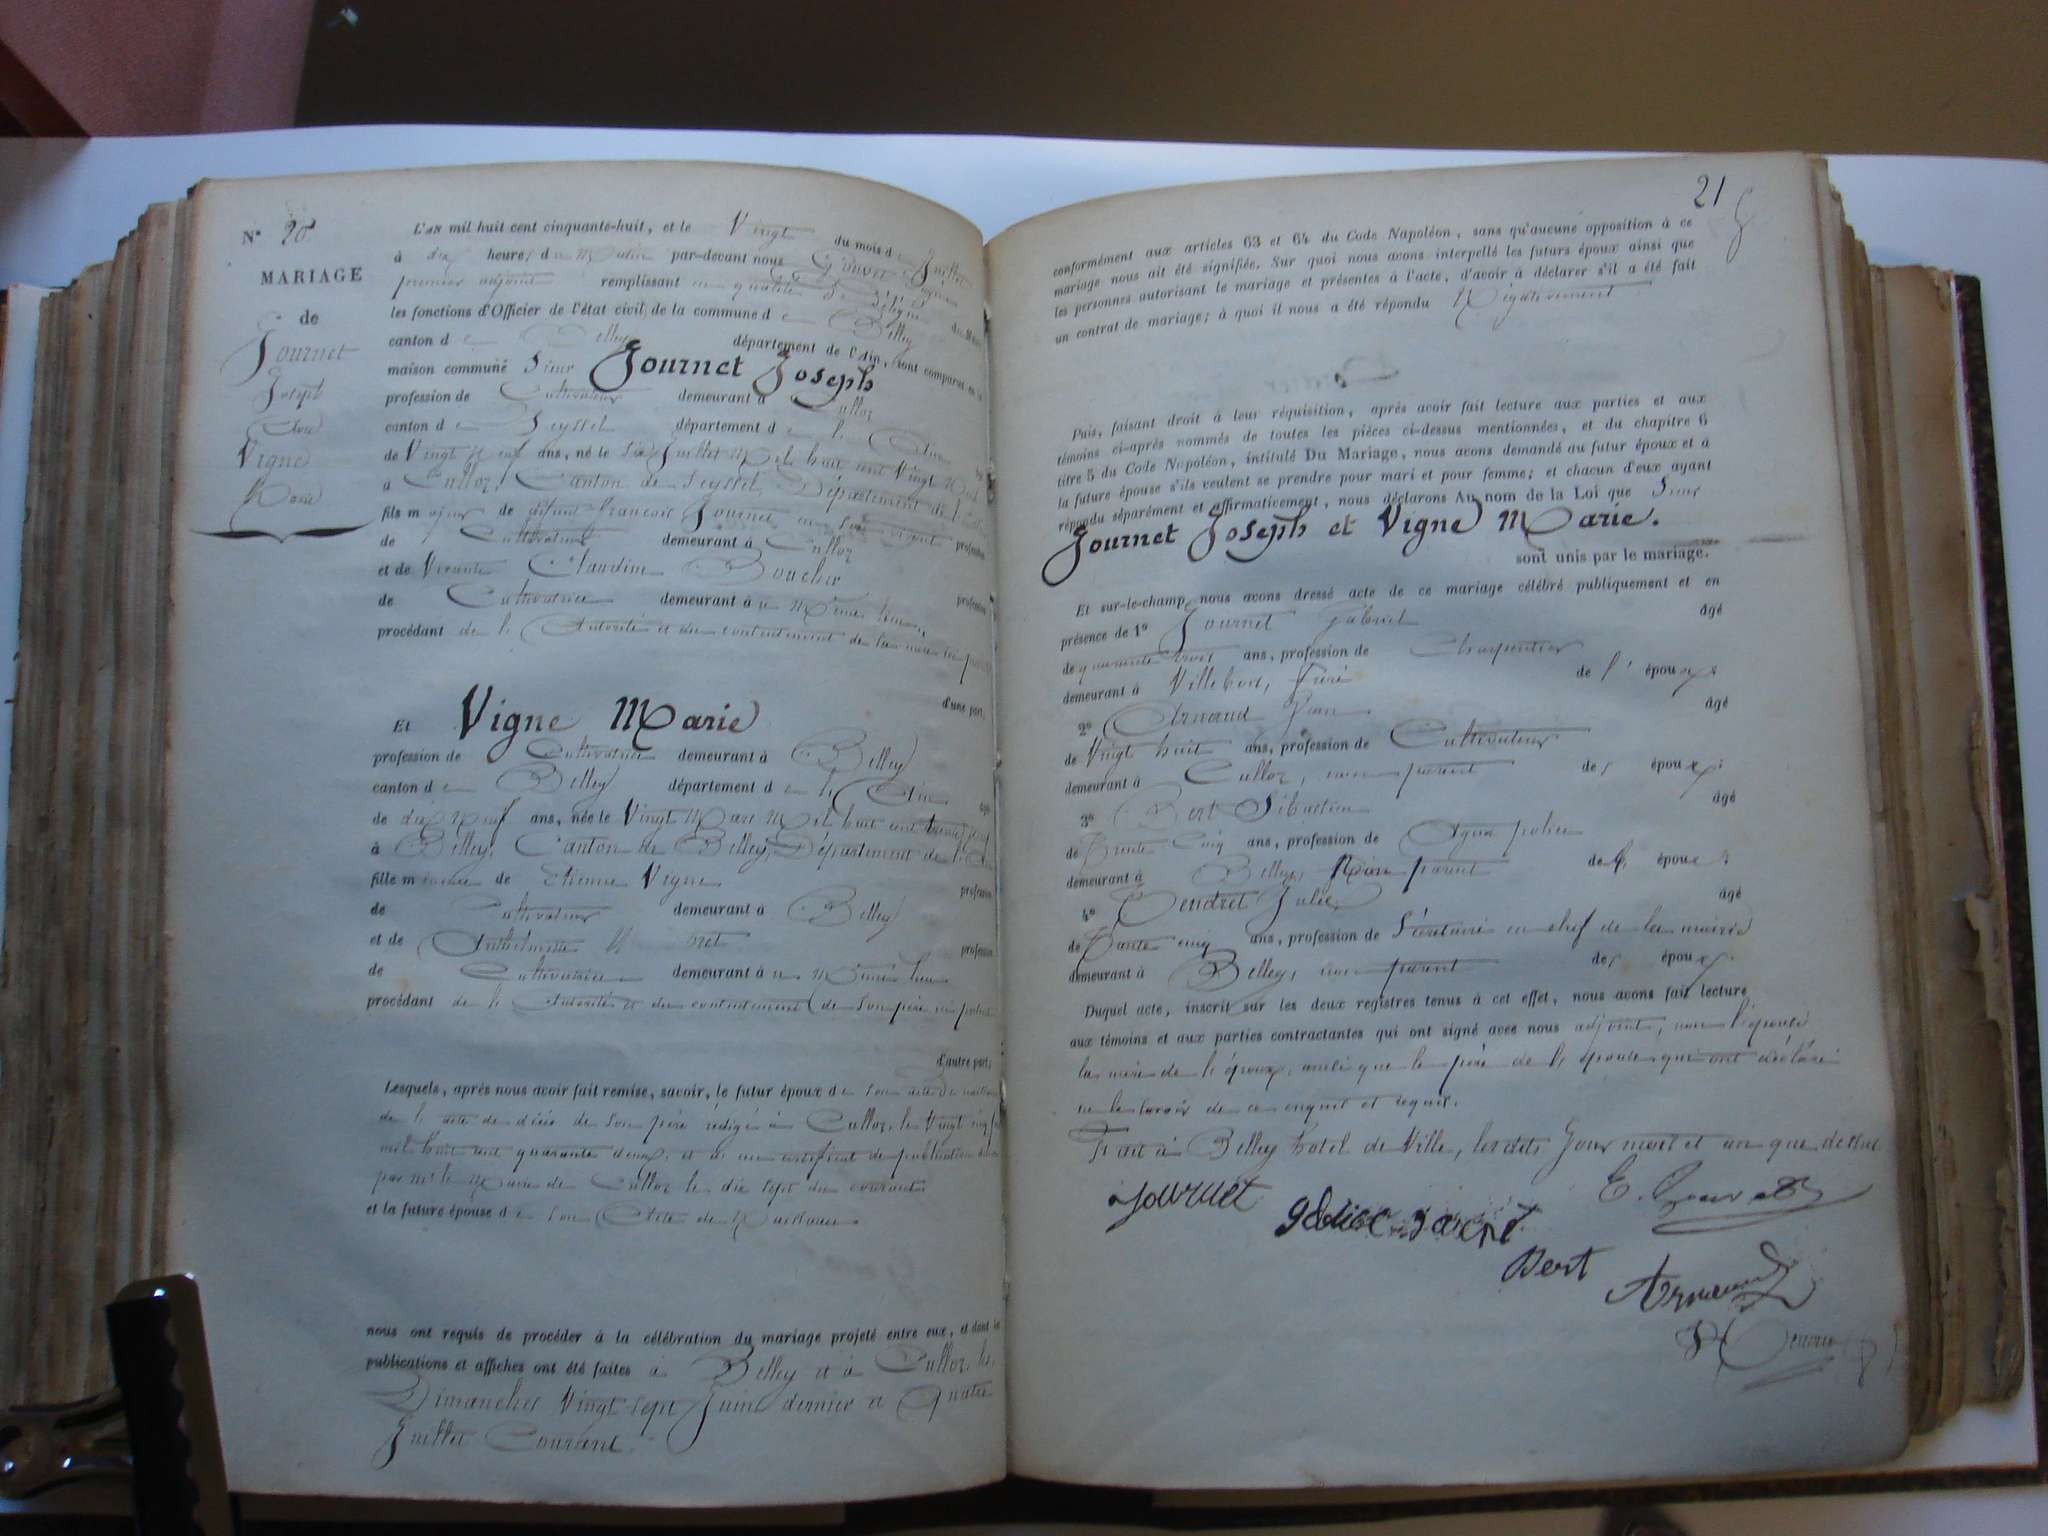 N° 20
MARIAGE
de
Journet
Joseph
Avec
Vigne
Marie
L'an mil huit cent cinquante-huit, et le Vingt du mois de Juillet
à dix heures du matin par-devant nous
premier adjoint remplissant en qualité de délégué du Maire
les fonctions d'Officier de l'état civil de la commune de Belley
canton de Belley département de l'Ain, sont comparus en la
maison commune Sieur Journet Joseph
profession de Cultivateur demeurant à Culloz
canton de Seyssel département de l'Ain
de Vingt Neuf ans, né le Six Juillet Mil huit cent Vingt Neuf
à Culloz, Canton de Seyssel, Département de l'Ain
fils majeur de défunt francois Journet en son vivant profession
de Cultivateur demeurant à Culloz
et de Vivante Claudine Boucher
profession
de Cultivatrice demeurant à u Même lieu,
procédant de l'Autorité et du contentement de sa mère ici présente
d'une part,
Et Vigne Marie
profession de Cultivatrice demeurant à Belley
canton de Belley département de l'Ain âgée
de dix Neuf ans, née le Vingt Mars Mil huit cent trente neuf
à Belley, Canton de Belley, Département de l'Ain
fille mineure de Etienne Vigne profession
de Cultivateur demeurant à Belley
et de Anthelmette profession
de Cultivatrice demeurant à u Même lieu
procédant de l'Autorité et du contentement de Son père ici présent
d'autre part;
Lesquels, après nous avoir fait remise, savoir, le futur époux de Son acte de naissance
de l'acte de décès de Son père rédigé à Culloz, le Vingt cinq
mil huit cent quarante deux, et de un certificat de publication
par Mr le Maire de Culloz le dix sept du courant
et la future épouse de Son Acte de Naissance.
nous ont requis de procéder à la célébration du mariage projeté entre eux, et dont les
publications et affiches ont été faites à Belley et à Culloz, les
Dimanches Vingt sept Juin dernier et Quatre
Juillet Courant.
21
conformément aux articles 63 et 64 du Code Napoléon, sans qu'aucune opposition à ce
mariage nous ait été signifiée. Sur quoi nous avons interpellé les futurs époux ainsi que
les personnes autorisant le mariage et présentes à l'acte, d'avoir à déclarer s'il a été fait
un contrat de mariage; à quoi il nous a été répondu Négativement
Puis, faisant droit à leur réquisition, après avoir fait lecture aux parties et aux
témoins ci-après nommés de toutes les pièces ci-dessus mentionnées, et du chapitre 6
titre 5 du Code Napoléon, intitulé Du Mariage, nous avons demandé au futur époux et à
la future épouse s'ils veulent se prendre pour mari et pour femme; et chacun d'eux ayant
répondu séparément et affirmativement, nous déclarons Au nom de la Loi que Sieur
Journet Joseph et Vigne Marie.
sont unis par le mariage.
Et sur-le-champ nous avons dressé acte de ce mariage célébré publiquement et en
présence de 1° Journet Gabriel âgé
de quarante trois ans, profession de Charpentier
demeurant à Villebois, frère de l'époux;
2° Arnaud Jean âgé
de Vingt huit ans, profession de Cultivateur
demeurant à Culloz, non parent des époux;
3° Bert Sébastien âgé
de Trente Cinq ans, profession de Agent police
demeurant à Belley, Non parent des époux;
4° Tendret Jules âgé
de Trente cinq ans, profession de Secrétaire en chef de la mairie
demeurant à Belley, non parent des époux.
Duquel acte, inscrit sur les deux registres tenus à cet effet, nous avons fait lecture
aux témoins et aux parties contractantes qui ont signé avec nous adjoint, non l'épouse
la mère de l'époux, ainsi que le père de l'épouse qui ont déclaré
ne le savoir de ce enquis et requis.
Fait à Belley hotel de Ville, lesdits Jour mois et an que dessus
Journet
Bert
Arnaud